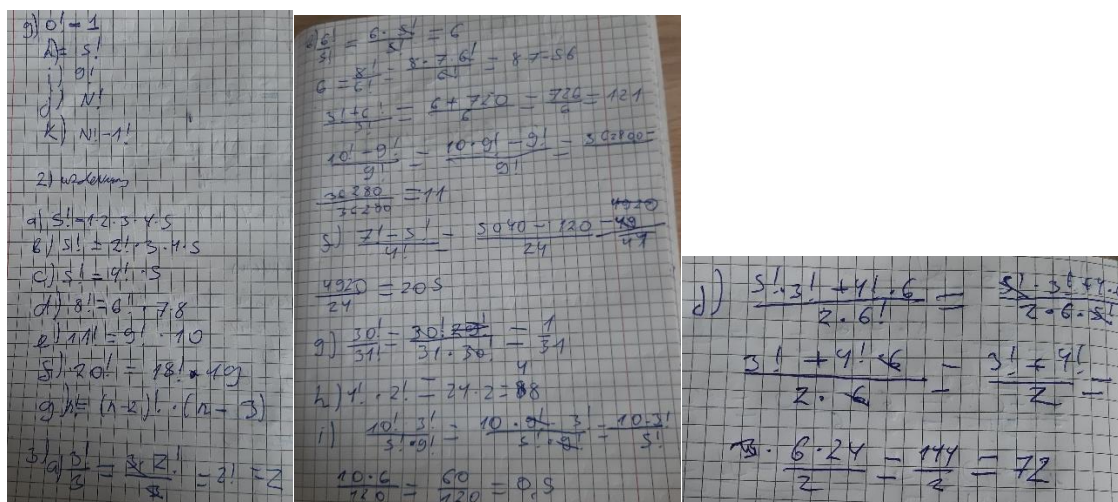 g) 0! = 1
h) = 5!
i) 9!
j) N!
k) N! - 1!
2)
a) 5! = 1·2·3·4·5
b) 5! = 2!·3·4·5
c) 5! = 4!·5
d) 8! = 6!·7·8
e) 11! = 9!·10
f) 20! = 18!·19
g) n! = (n-2)!·(n-3)
3! a) 3!/3 = 3·2!/3 = 2! = 2
6!/5! = 6·5!/5! = 6
6 = 8!/6! = 8·7·6!/6! = 8·7=56
3!+6!/3! = 6+720/6 = 726/6 = 121
10!-9!/9! = 10·9!-9!/9! =
36280/36280 = 11
f) 7!-5!/4! = 5040-120/24 =
4920/24 = 205
g) 30!/31! = 30!/31·30! = 1/31
h) 4!·2! = 24·2=48
i) 10! 3!/5!·9! = 10·9! 3/5!·9! = 10·3!/5!
10·6/120 = 60/120 = 0,5
j) 5!·3!+4!·6/2·6! = 5!·3!+4·/2·6·5!
3!+4!·6/2·6 = 3!+4!/2 =
6·24/2 = 144/2 = 72